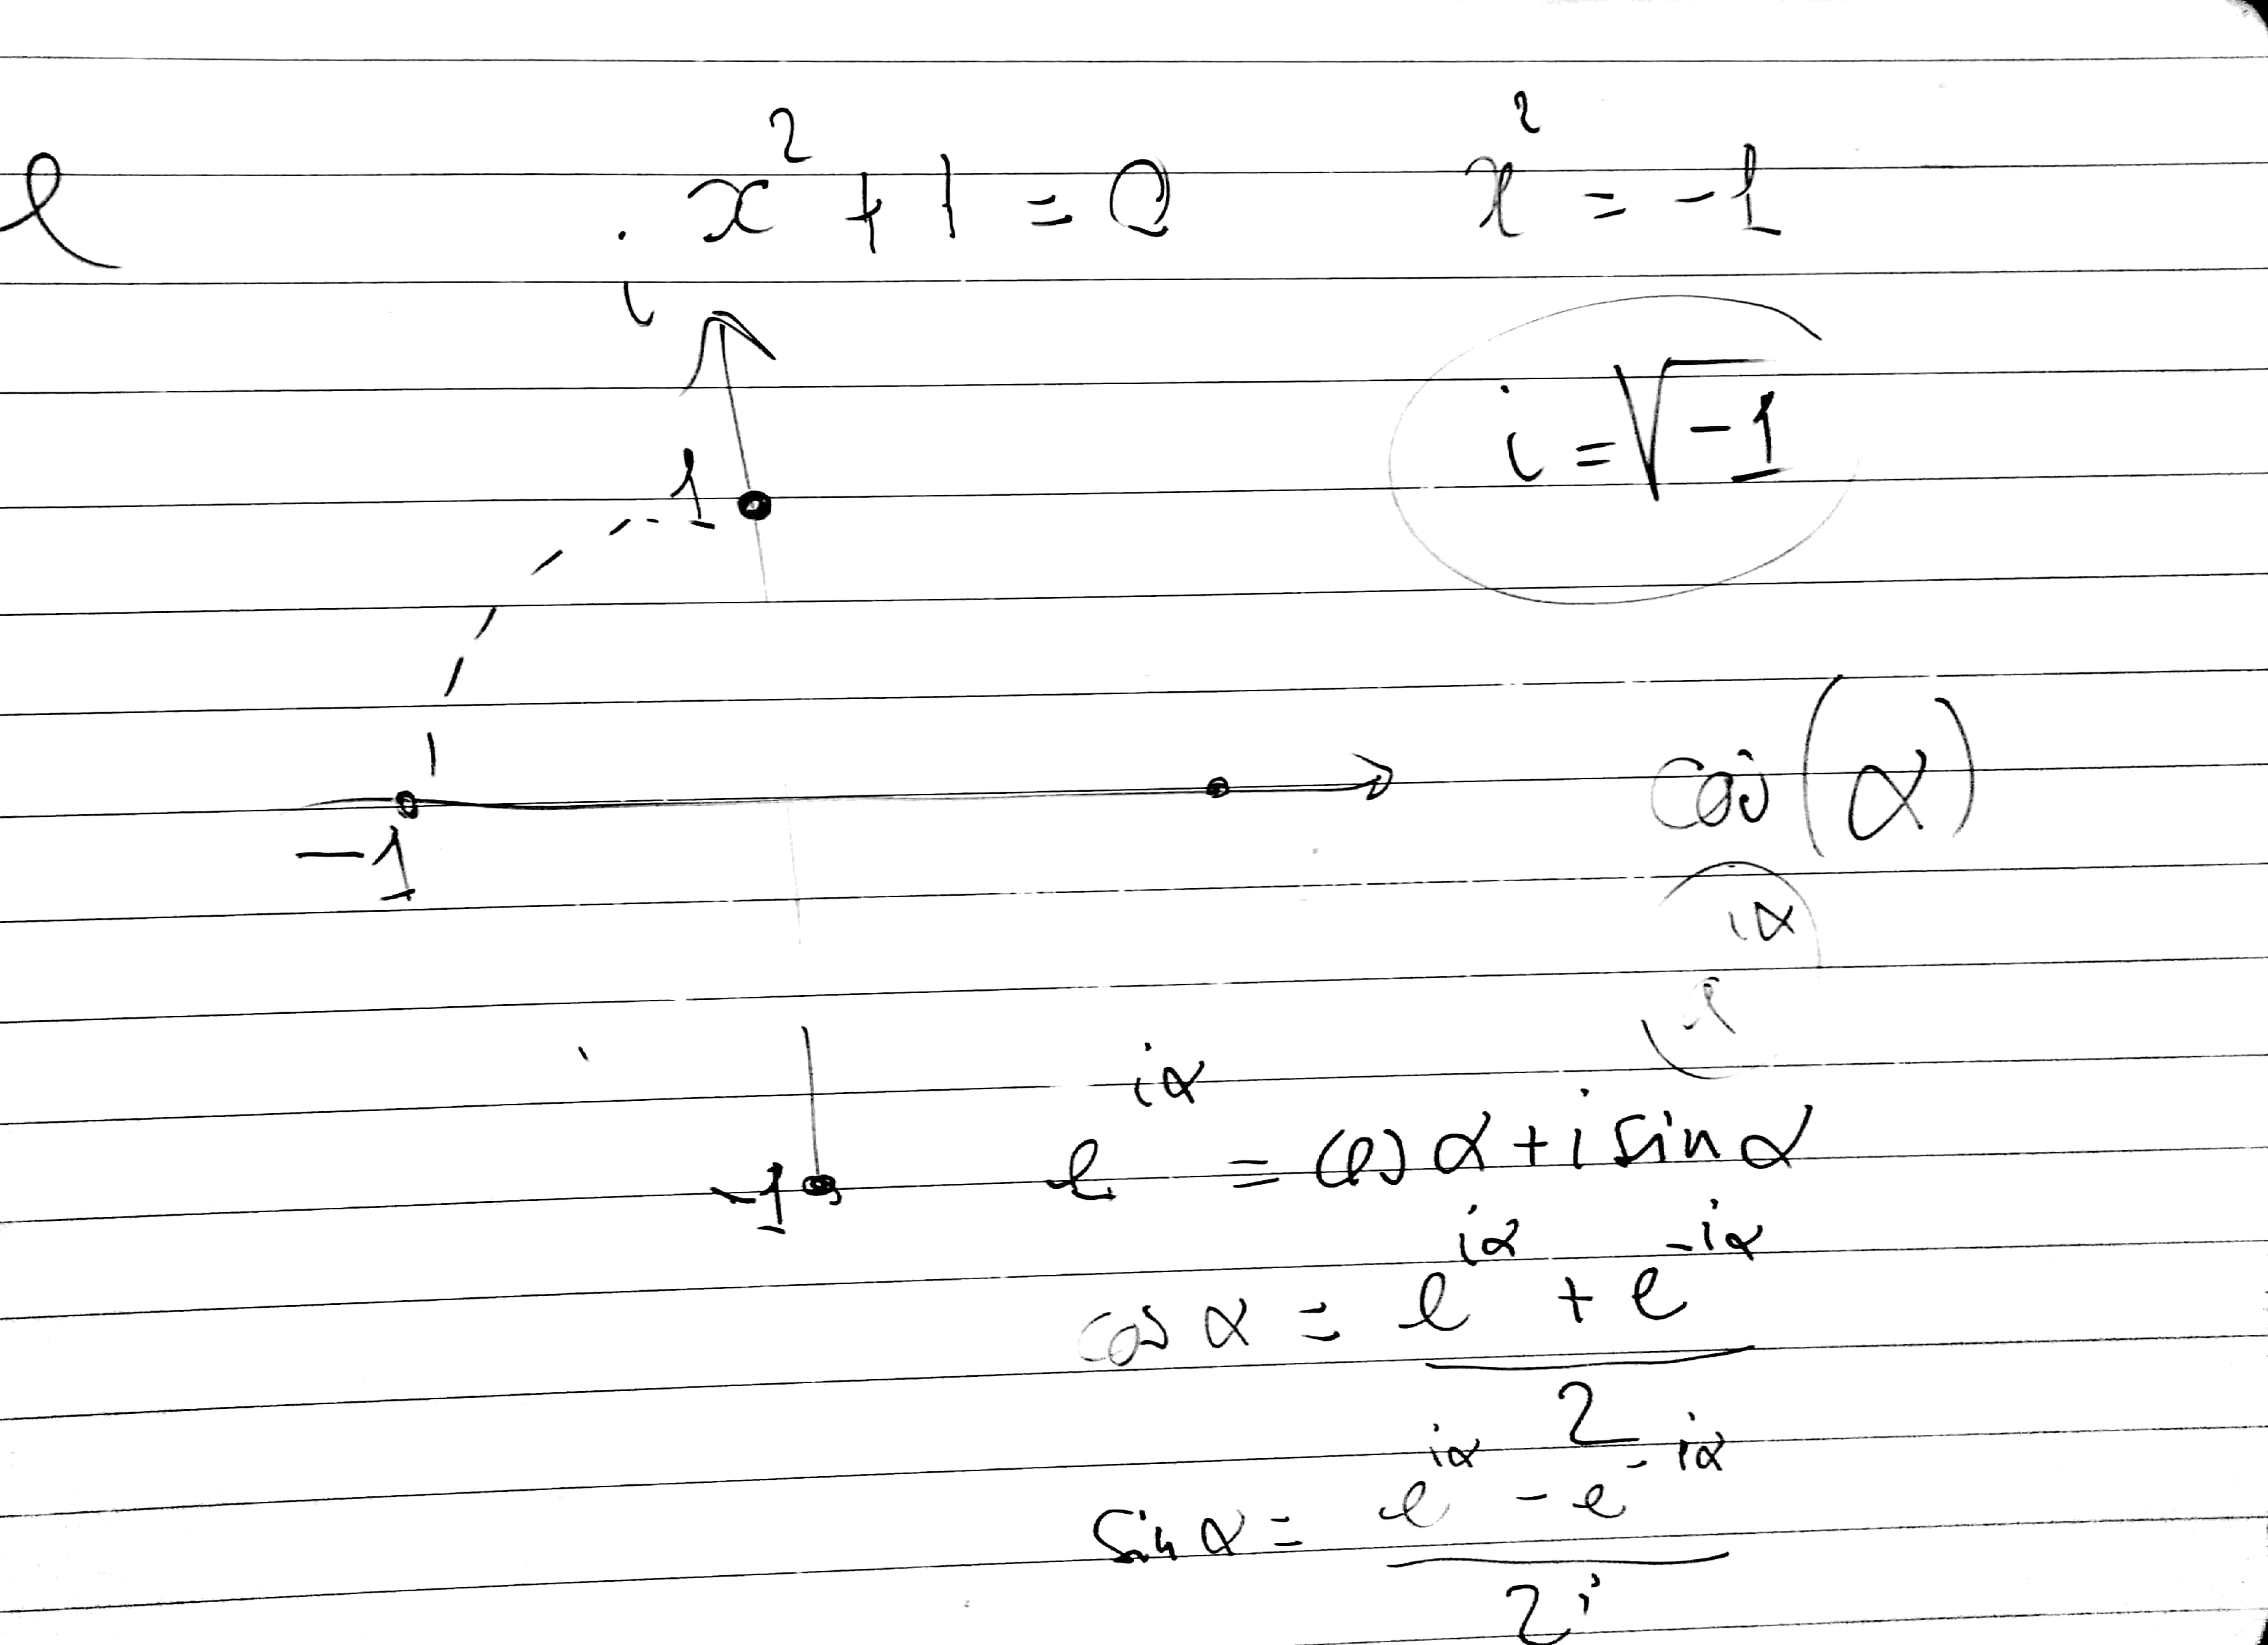 e x² + 1 = 0 x² = -1
i
i = √-1
1
cos(α)
-1
iα
e^{iα} = cos α + i sin α
-1
cos α = (e^{iα} + e^{-iα}) / 2
sin α = (e^{iα} - e^{-iα}) / 2i